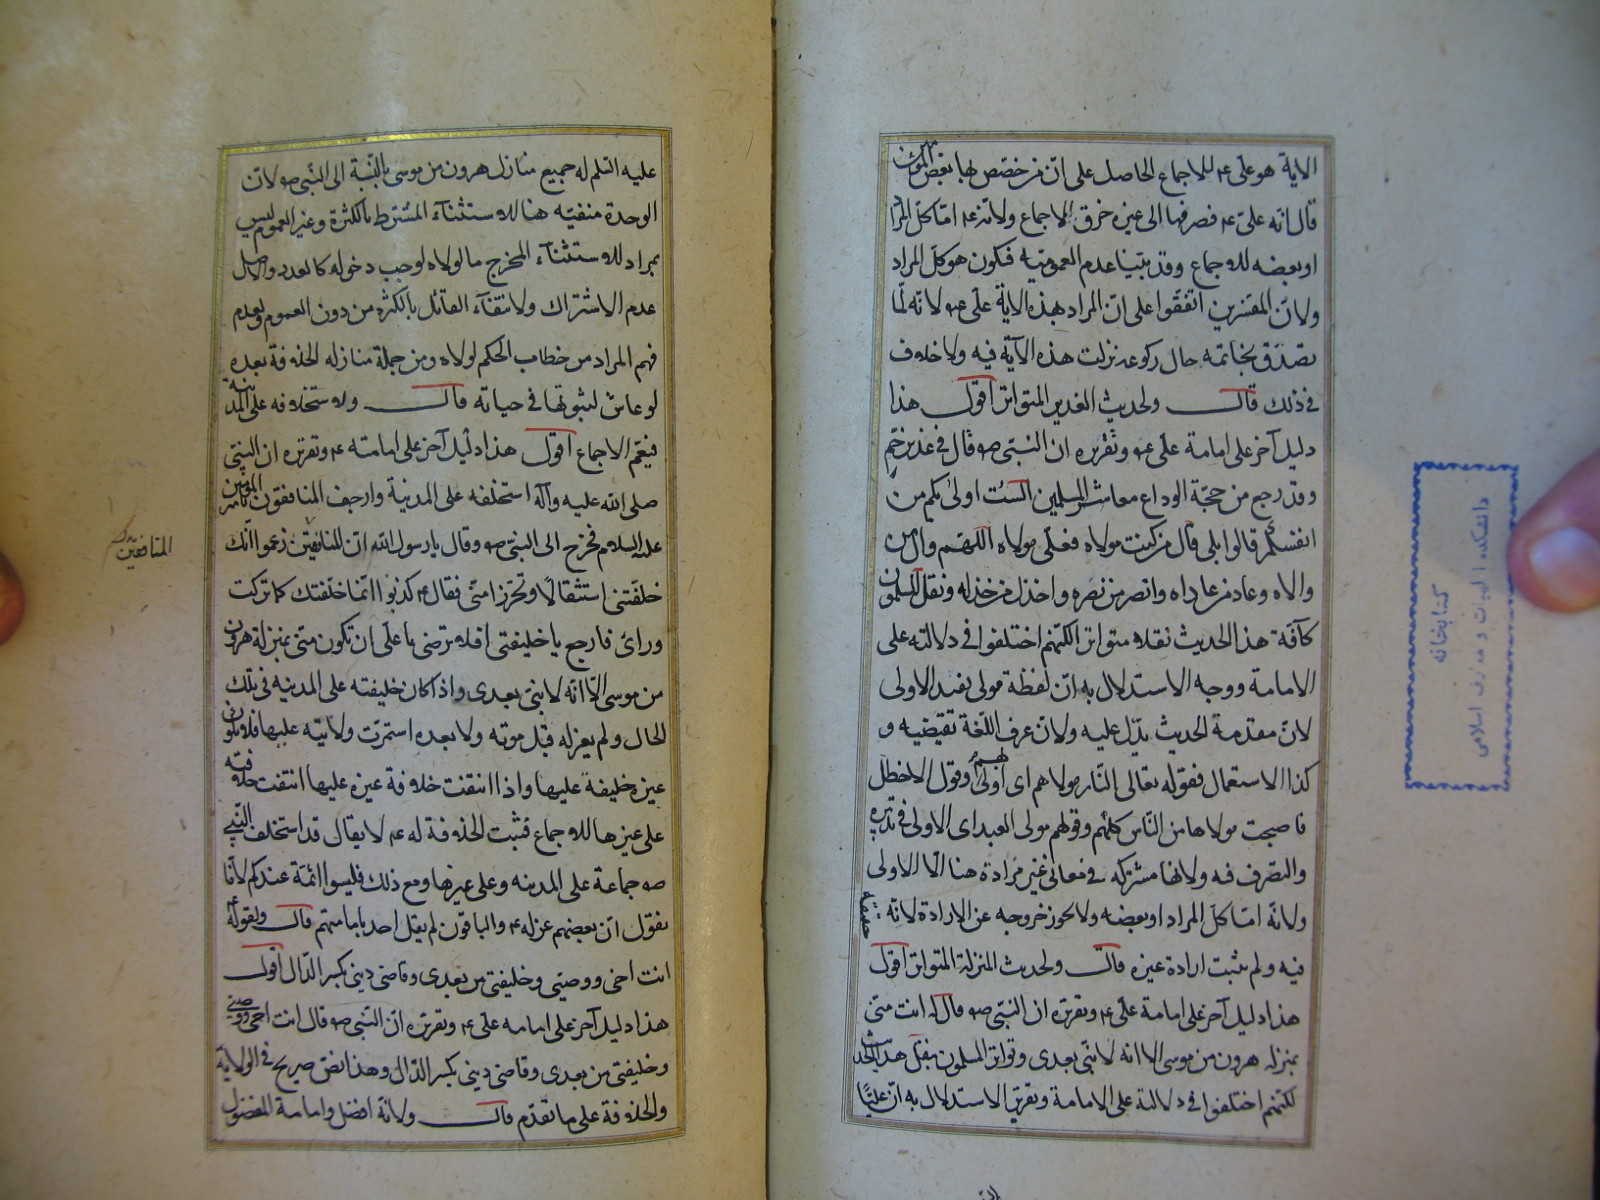 الاية هو على ع م للاجماع الحاصل على ان من خصص بها بعض المؤمنين
قال انه على ع م فصرفها الى غيره خرق الاجماع ولانه ع م اما كل المراد
او بعضه للاجماع وقد بينا عدم العمومية فكون هو كل المراد
ولان المفسرين اتفقوا على ان المراد بهذه الاية على ع م لانه لما
تصدق بخاتمه حال ركوعه نزلت هذه الآية فيه ولا خلاف
فى ذلك قال ولحديث الغدير المتواتر اقول هذا
دليل آخر على امامة على ع م وتقريره ان النبى ص قال فى غدير خم
وقد رجع من حجة الوداع معاشر المسلمين الست اولى بكم من
انفسكم قالوا بلى قال من كنت مولاه فعلى مولاه اللهم وال من
والاه وعاد من عاداه وانصر من نصره واخذل من خذله ونقل المسلمون
كافة هذا الحديث نقلا متواترا لكنهم اختلفوا فى دلالته على
الامامة ووجه الاستدلال به ان لفظة مولى يفيد الاولى
لان مقدمة الحديث يدل عليه ولان عرف اللغة تقيضيه و
كذا الاستعمال فقوله تعالى النار مولاهم اى اولى بهم وقول الاخطل
فاصبحت مولاها من الناس كلهم وقولهم مولى العبد اى الاولى فى تدبيره
والتصرف فيه ولانها مشتركه فى معانى غير مرادة هنا الا الاولى
ولانه اما كل المراد او بعضه ولا يجوز خروجه عن الارادة لانه حقيقة
فيه ولم يثبت ارادة غيره قال ولحديث المنزلة المتواتر اقول
هذا دليل آخر على امامة على ع م وتقريره ان النبى ص قال له انت منى
بمنزله هرون من موسى الا انه لا نبى بعدى وتواتر المسلمون بنقل هذا الحديث
لكنهم اختلفوا فى دلالته على الامامة وتقرير الاستدلال به ان عليا
دانشكده الهيات و معارف اسلامى
كتابخانه
عليه السلم له جميع منازل هرون من موسى بالنسبة الى النبى ص لان
الوحدة منفيه هنا للاستثناء المشترط بالكثرة وغير العموم ليس
بمراد للاستثناء المخرج ما لولاه لوجب دخوله كالعدد والاصل
عدم الاشتراك ولانتفاء القائل بالكثره من دون العموم ولعدم
فهم المراد من خطاب الحكم لولاه ومن جملة منازله الخلافة بعده
لو عاش لثبوتها فى حياته قال ولاستخلافه على المدينه
فيعم الاجماع اقول هذا دليل آخر على امامته ع م وتقريره ان النبى
صلى الله عليه وآله استخلفه على المدنية وارجف المنافقون بامير المؤمنين
عليه السلام فخرج الى النبى ص وقال يا رسول الله ان المنافقين زعموا انك
المنافقين
خلفتنى استثقالا وتحرزا منى فقال ع م كذبوا انما خلفتك لما تركت
ورائى فارجع يا خليفتى افلا ترضى يا على ان تكون منى بمنزلة هرون
من موسى الا انه لا نبى بعدى واذا كان خليفته على المدنيه فى تلك
الحال ولم يعزله قبل موته ولا بعده استمرت ولاتيه عليها فلا يكون
غيره خليفة عليها واذا انتفت خلافة غيره عليها انتفت خلافته
على غيرها للاجماع فثبت الخلافة له ع م لا يقال قد استخلف النبى
ص جماعة على المدينه وعلى غيرها ومع ذلك فليسوا ائمة عندكم لانا
نقول ان بعضهم عزله ع م والباقون لم يقل احد بامامتهم قال ولقوله ع م
انت اخى ووصيى وخليفتى من بعدى وقاضى دينى بكسر الدال اقول
هذا دليل آخر على امامه على ع م وتقريره ان النبى ص قال انت اخى ووصيى
وخليفتى من بعدى وقاضى دينى بكسر الدال وهذا نص صريح فى الولاية
والخلافة على ما تقدم قال ولانه افضل وامامة المفضول